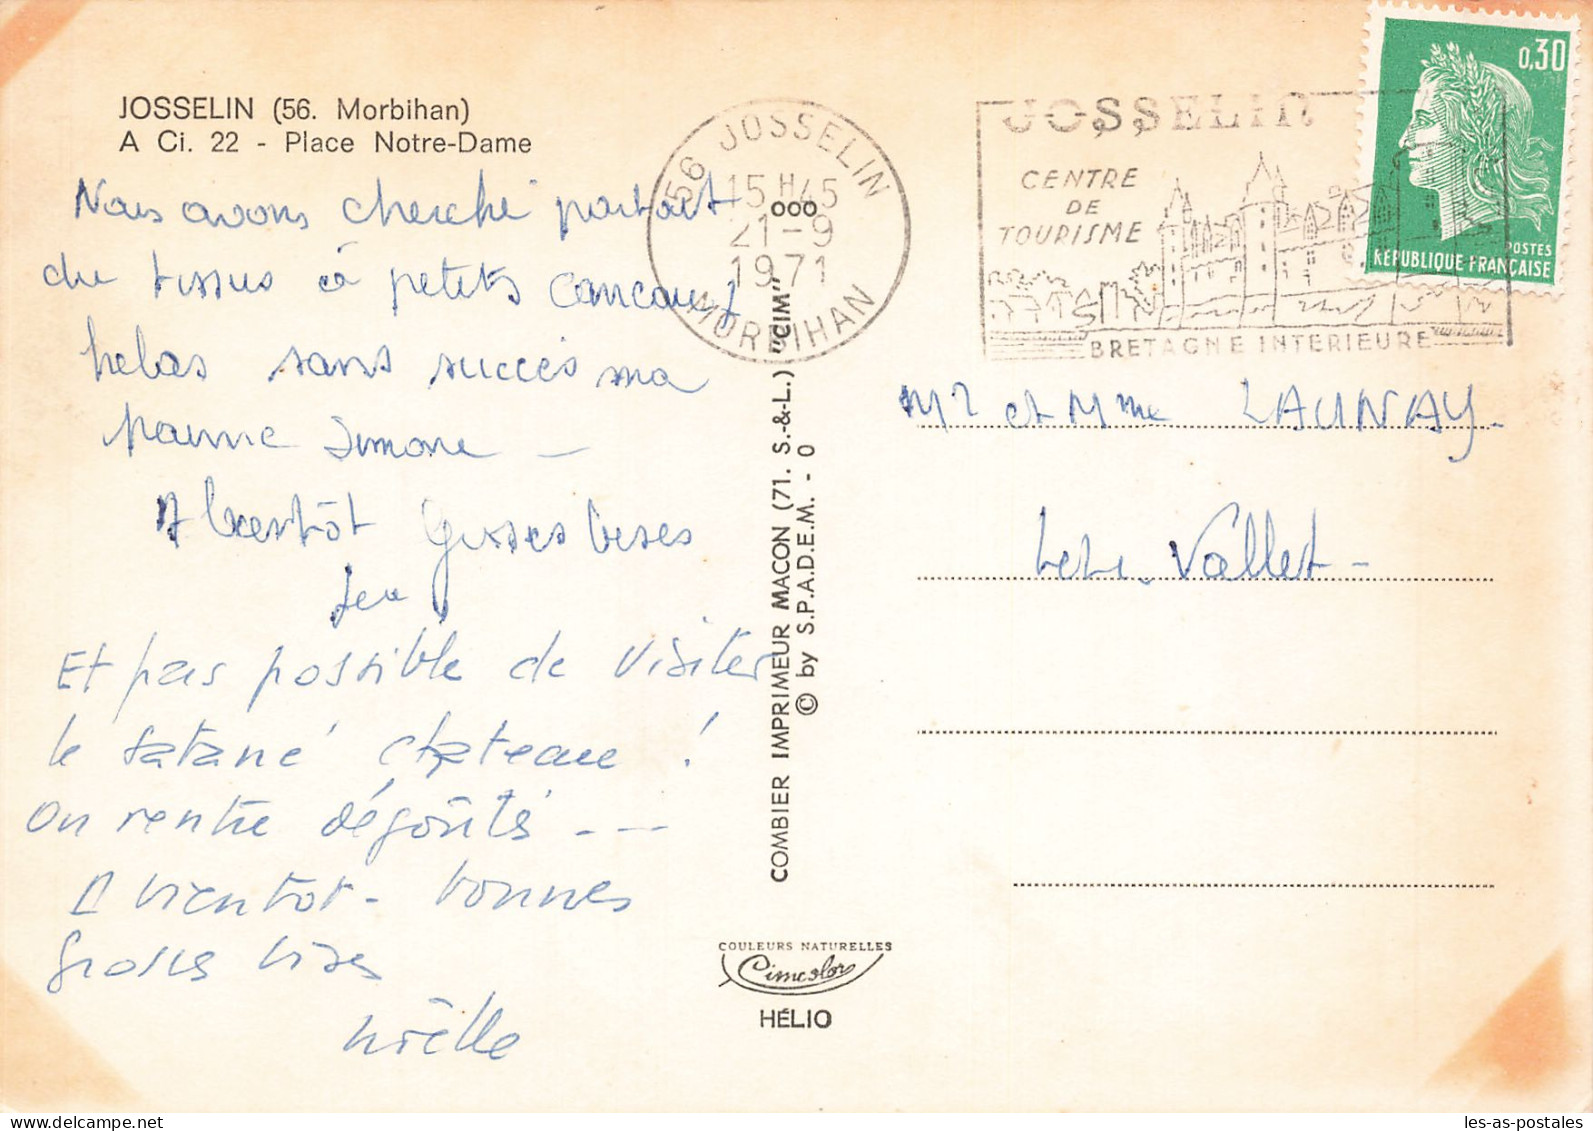 JOSSELIN (56. Morbihan)
A Ci. 22 - Place Notre-Dame
Nous avons cherché partout
du tissus à petits carreaux
helas sans succès ma
pauvre Simone -
A bientôt Grosses bises
Et pas possible de visiter
le satané chateau !
On rentre dégoûtés - - -
A bientot - bonnes
grosses bises
Noëlle
56 JOSSELIN
15 H 45
21-9
1971
MORBIHAN
COMBIER IMPRIMEUR MACON (71. S.-&-L.) "CIM"
© by S.P.A.D.E.M. - 0
COULEURS NATURELLES
Cimcolor
HÉLIO
JOSSELIN
CENTRE
DE
TOURISME
BRETAGNE INTERIEURE
0,30
POSTES
RÉPUBLIQUE FRANÇAISE
Mr et Mme LAUNAY -
Vallet -
les-as-postales